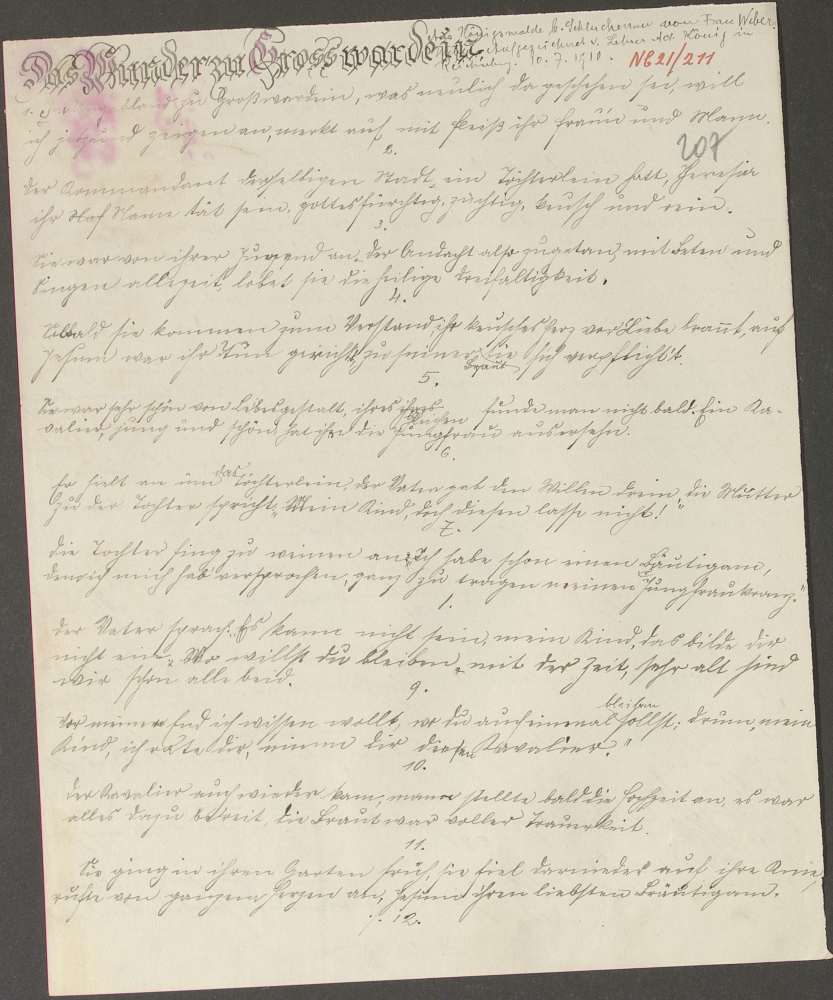 Das Wunder zu Grosswardein
Königswalde b. Schluckenau von Frau Weber.
Aufgezeichnet v. Lehrer Ad. König in
10. 7. 1910.
NE21/211
207
1. zu Großwardein, was neulich da geschehen sei, will
ich zeigen an, merkt auf mit Fleiß ihr Frau'n und Mann.
2.
Der Kommandant derselbigen Stadt, ein Töchterlein hatt, Theresia
ihr Nam tät sein, gottesfürchtig, züchtig, keusch und rein.
3.
Sie war von ihrer Jugend an, der Andacht also zugetan, mit Beten und
Singen allezeit, lobet sie die heilige Dreifaltigkeit.
4.
Sobald sie kommen zum Verstand, ihr keusches Herz vor Liebe brannt, auf
Jesum war ihr Tun gericht, zu seiner Braut sie sich verpflicht't.
5.
Sie war sehr schön von Leibesgestalt, ihres
gleichen funde man nicht bald. Ein Ka-
valier, jung und schön, hat ihm die Jungfrau ausersehn.
6.
Er hielt an um das Töchterlein, der Vater gab den Willen drein, die Mutter
zu der Tochter spricht: „Mein Kind, doch diesen lasse nicht!"
7.
Die Tochter fing zu weinen an: „Ich habe schon einen Bräutigam,
dem ich mich hab versprochen, ganz zu tragen meinen Jungfraukranz."
8.
Der Vater sprach: „Es kann nicht sein, mein Kind, das bilde dir
nicht ein. Wo willst du bleiben mit der Zeit, sehr alt sind
wir schon alle beid.
9.
Vor meinem End ich wissen wollt, wo du auf einmal bleiben sollst; drum, mein
Kind, ich rate dir, nimm dir diesen Kavalier."
10.
Der Kavalier auch wieder kam, man stellte bald die Hochzeit an, es war
alles dazu bereit, die Braut war voller Traurigkeit.
11.
Sie ging in ihren Garten früh, sie fiel darnieder auf ihre Knie,
rufte von ganzem Herzen an, Jesum ihren liebsten Bräutigam.
12.